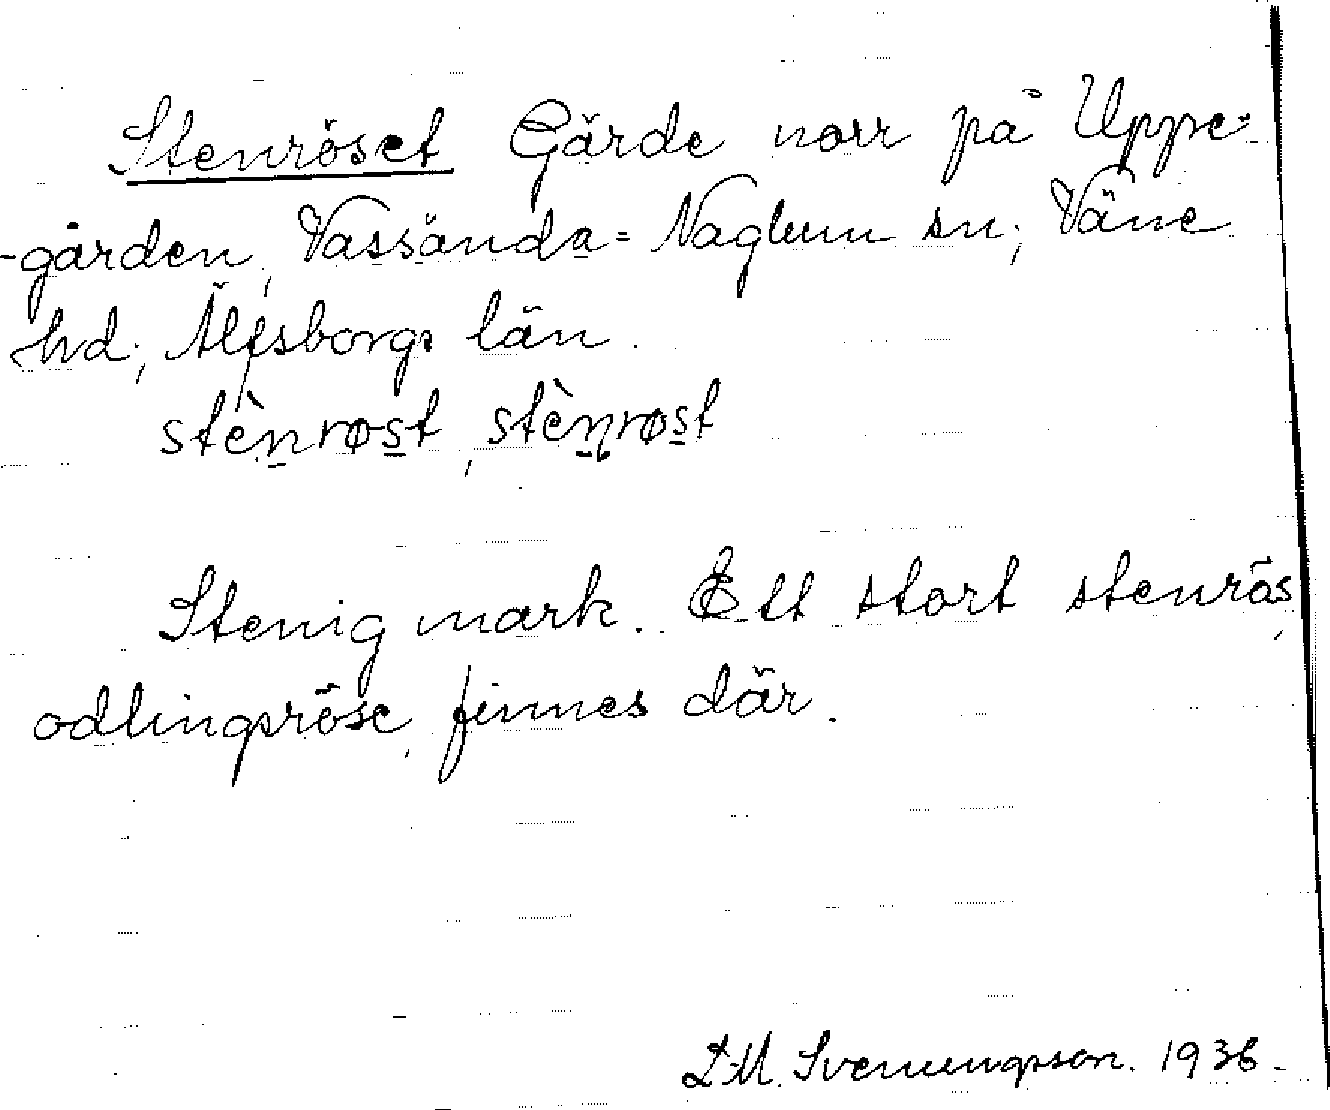 Stenröset Gärde norr på Uppe-
-gården, Vassända-Naglum sn; Väne
hd; Älfsborgs län.
stènrøst, stènrøst
Stenig mark. Ett stort stenrös,
odlingsröse, finnes där.
D.M. Svenungsson. 1936.